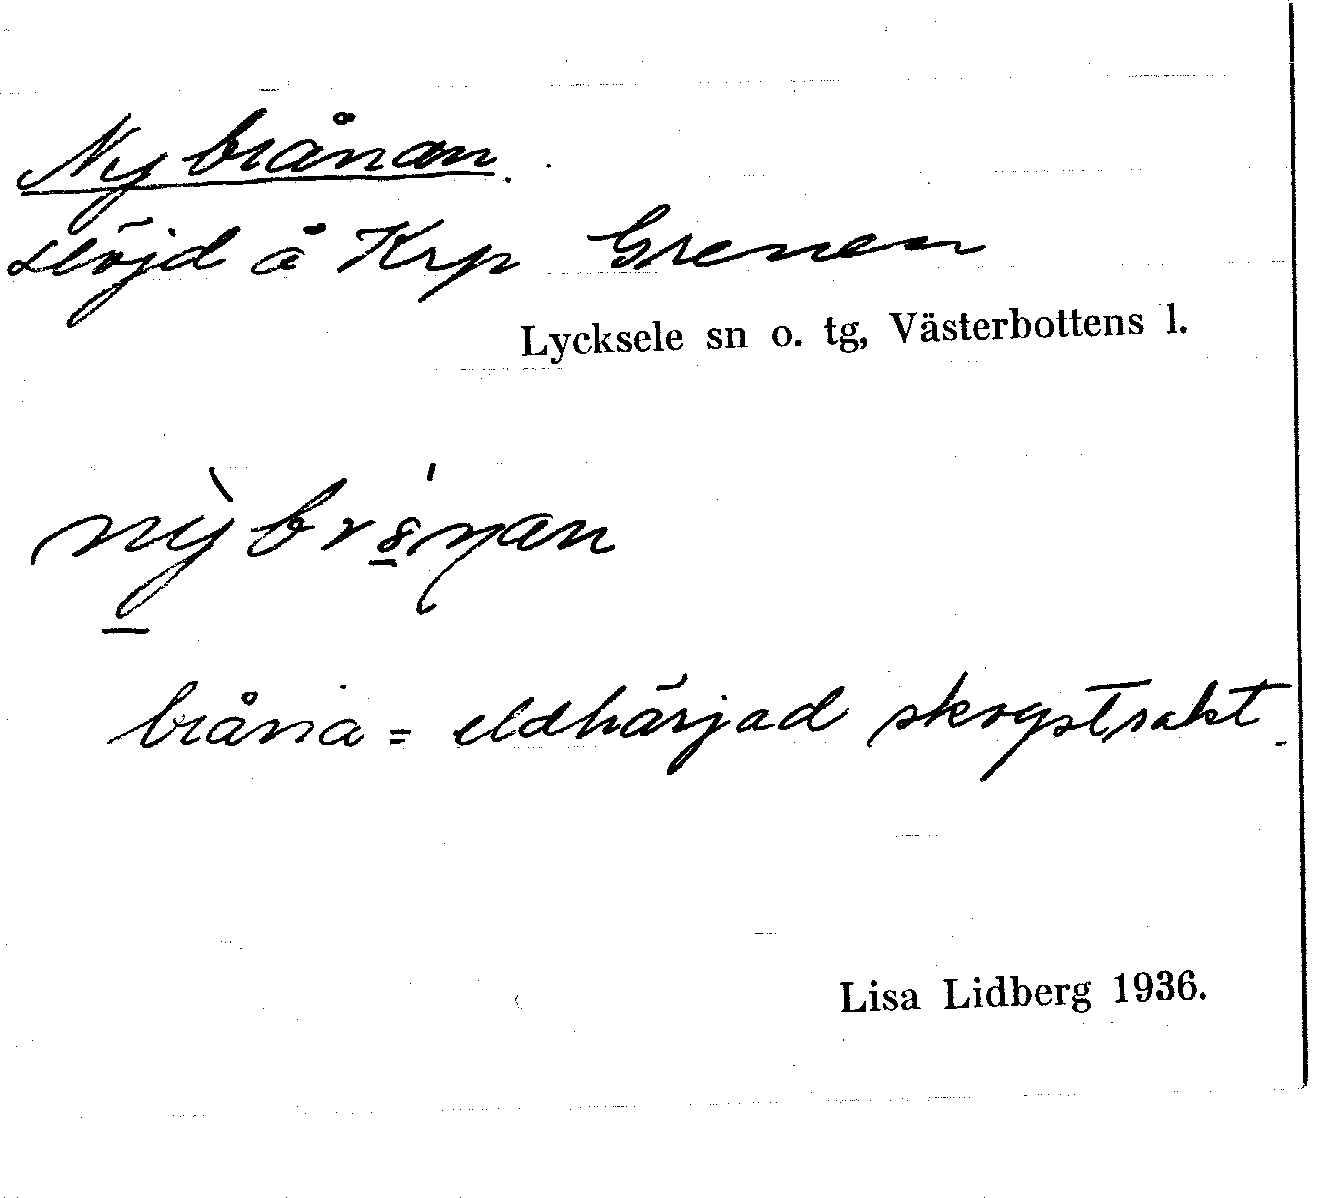 Nybrånan.
slöjd å Krp Grenen
Lycksele sn o. tg, Västerbottens l.
bråna = eldhärjad skogstrakt.
Lisa Lidberg 1936.